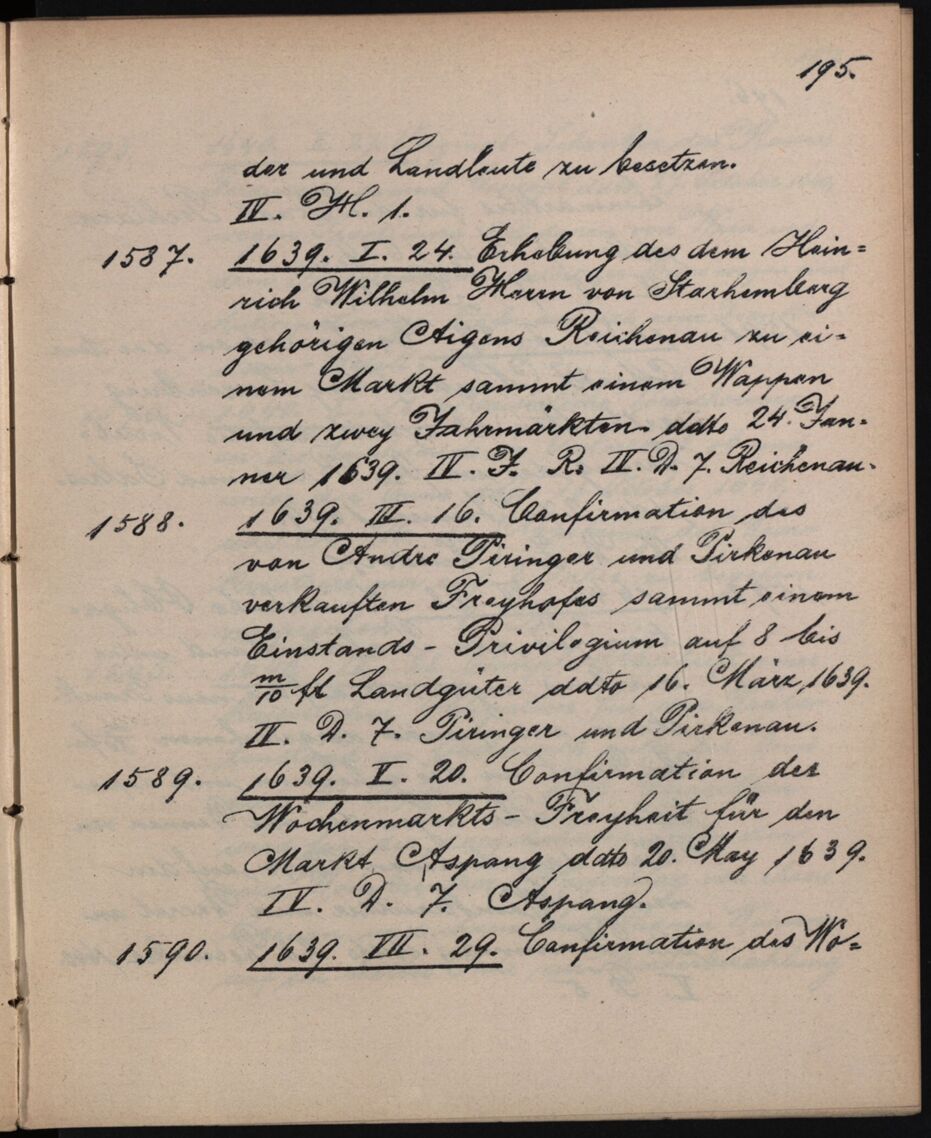 195.
der und Landleute zu besetzen.
IV. H. 1.
1587. 1639. I. 24. Erhebung des dem Hein=
rich Wilhelm Herrn von Starhemberg
gehörigen Aigens Reichenau zu ei-
nem Markt sammt einem Wappen
und zwey Jahrmärkten ddto 24. Jän-
ner 1639. IV. F. R. IV. D. 7. Reichenau.
1588. 1639. III. 16. Confirmation des
von Andre Piringer und Pirkenau
verkauften Freyhofes sammt einem
Einstands-Privilegium auf 8 bis
m/10 fl Landgüter ddto 16. März 1639.
IV. D. 7. Piringer und Pirkenau.
1589. 1639. V. 20. Confirmation der
Wochenmarkts-Freyheit für den
Markt Aspang ddto 20. May 1639.
IV. D. 7. Aspang.
1590. 1639. VII. 29. Confirmation des Wo=